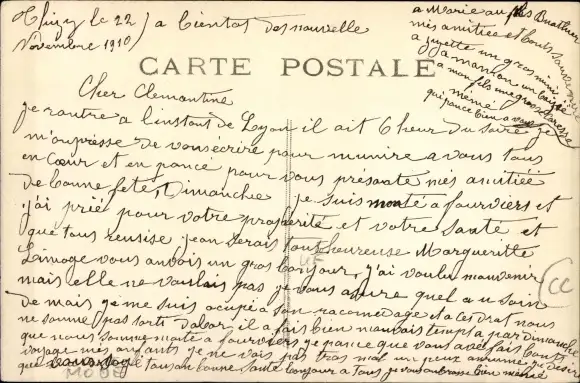 Thizy le 22
Novembre 1910
a bientot des nouvelle
a Marie au fils Buathier
més amitiée et touts
a juzette un gros mimi
a mamson un baisse
a mon fils une grosse caresse
qui pance bien a vous
mémé
CARTE POSTALE
Cher Clemantine
je rantre a linstant de Loyon il ait 6 heur du soire je
m'oupresse de vonsecrire pour munire a vous tous
en Cœur et en pancé pour vous présante més amitiée
de bonne fete, Dimanche je suis monté a fourviers et
j'ai prié pour votre prospérité et votre santé et
que tous reusise jean serais tout heureuse Margueritte
Limoge vous anvois un gros bonjour, j'ai voulu mauvenir
mais elle ne voulais pas je vous assure quel a u soin
de mais je me suis ocupé a son racomedage et a ces drat nous
ne somme pas sorti dabor il a fais bien mauvais temp a par Dimanche
que nous somme monté a fourviers je pance que vous avez fais bonts
voyage més anfants je ne vais pas tros mal un peux anrumé je désir
que vous tous an bonne santé bonjour a tous je vous anbrasse bien mémé
CC